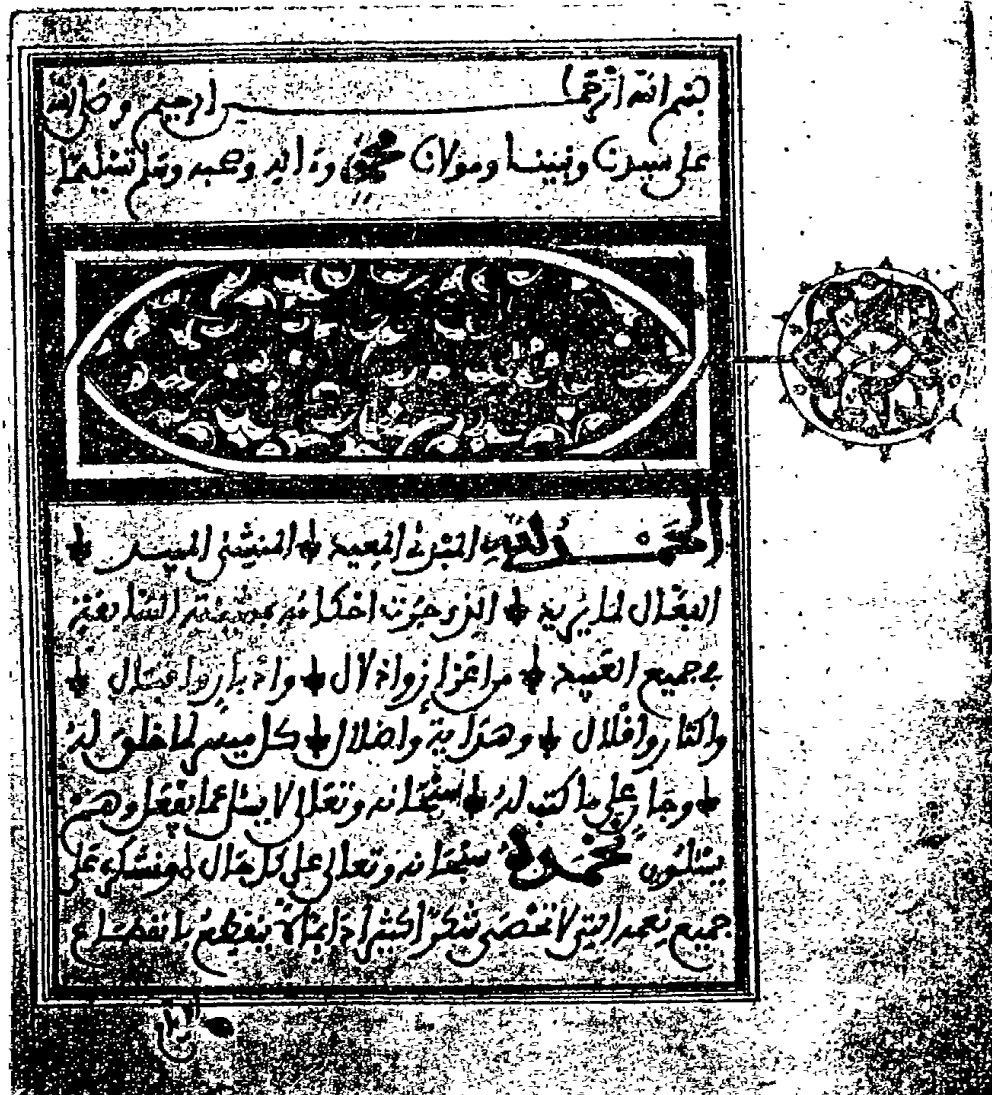 بسم الله الرحمن الرحيم وصلى الله
على سيدنا ونبينا ومولانا محمد وءاله وصحبه وسلم تسليما
الحمد لله المبدئ المعيد المنشئ المبيد
الفعال لما يريد الذي جرت احكامه السابغة
في جميع العبيد من اعزاز واذلال وادبار واقبال
واكثار واقلال وهداية واضلال كل ميسر لما خلق له
وجار على ما كتب له سبحانه وتعالى لا يسئل عما يفعل وهم
يسئلون نحمده سبحانه وتعالى على كل حال ونشكره على
جميع نعمه التي لا تحصى شكرا كثيرا دائما لا ينقطع بانقطاع